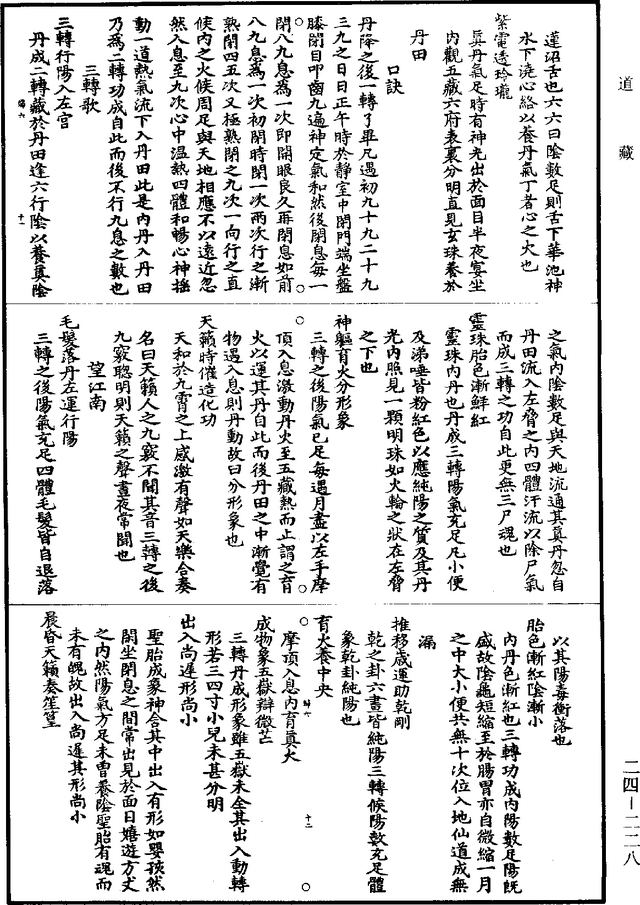 道藏
蓮沼舌也六六曰陰數足則舌下華池神
水下澆心絡以養丹氣丁者心之火也
紫電透玲瓏
眞丹氣足時有神光出於面目半夜寳坐
內觀五藏六府表裏分明直見玄珠養於
丹田
口訣
丹降之後一轉了畢凡遇初九十九二十九
三九之日日正午時於靜室中閉門端坐盤
膝閉目叩齒九通神定氣和然後閉息每一
閉八九息爲一次即開眼良久再閉息如前
八九息爲一次初閉時閉一次兩次行之漸
熟閉四五次又極熟閉之九次一向行之直
候內之火候周足與天地相應不以遠近忽
然入息至九次心中温熱四體和暢心神揺
動一道熱氣流下入丹田此是內丹入丹田
乃爲二轉功成自此而後不行九息之數也
三轉歌
三轉行陽入左宮
丹成二轉藏於丹田逢六行陰以養眞陰
之氣內陰數足與天地流通其眞丹忽自
丹田流入左脅之內四體汗流以除尸氣
而成三轉之功自此更無三尸魂也
靈珠胎色漸鮮紅
靈珠內丹也丹成三轉陽氣充足凡小便
及涕唾皆粉紅色以應純陽之質及其丹
光內照見一顆明珠如火輪之狀在左脅
之下也
神軀育火分形象
三轉之後陽氣已足每遇月盡以左手摩
頂入息激動丹火至五藏熱而止謂之育
火以運其丹自此而後丹田之中漸覺有
物遇入息則丹動故曰分形象也
天籟時催造化功
天和於九霄之上感激有聲如天樂合奏
名曰天籟人之九竅不聞其音三轉之後
九竅聰明則天籟之聲晝夜常聞也
望江南
毛髮落丹左運行陽
三轉之後陽氣充足四體毛髮皆自退落
以其陽毒衝落也
胎色漸紅陰漸小
內丹色漸紅也三轉功成內陽數足陽旣
盛故陰龜短縮至於腸胃亦自微縮一月
之中大小便共無十次位入地仙道成無
漏
推移歲運助乾剛
乾之卦六畫皆純陽三轉候陽數充足體
象乾卦純陽也
育火養中央
摩頂入息內育眞火
成物象五獄辯微芒
三轉丹成形象雖五獄未全其出入動轉
形若三四寸小兒未甚分明
出入尚遲形尚小
聖胎成象神合其中出入有形如嬰孩然
閉坐閉息之間常出見於面目嬉遊方丈
之內然陽氣方足未曽養陰聖胎有魂而
未有魄故出入尚遲其形尚小
晨昏天籟奏笙篁
二四－二二八